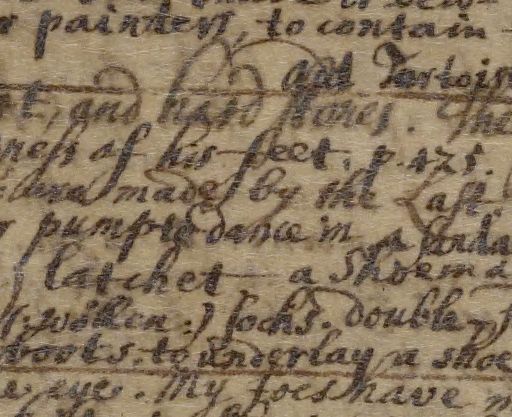 r painters, to contain
and Tortois
and hard stones. The
ness of his feet. p. 175.
made by the Last.
r pumps to dance in a sanda
latchet a Shoema
(woollen:) socks. double
roots. to underlay a shoe
e eye. My toes have n